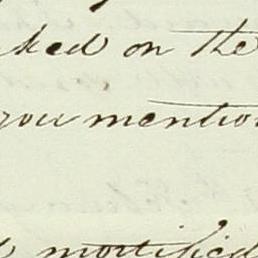 ked on the
you mention
mortified